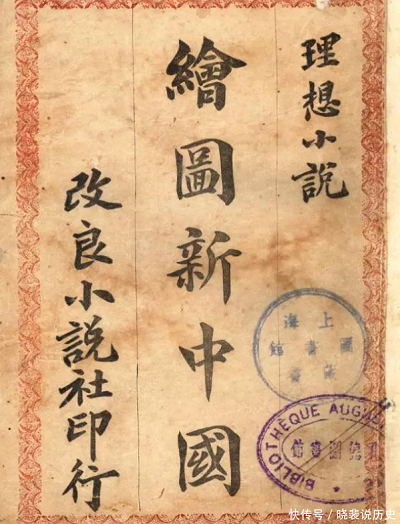 理想小說
繪圖新中國
改良小說社印行
上海
圖書館
藏書
BIBLIOTHEQUE AUGU
書館
快传号/晓裴说历史